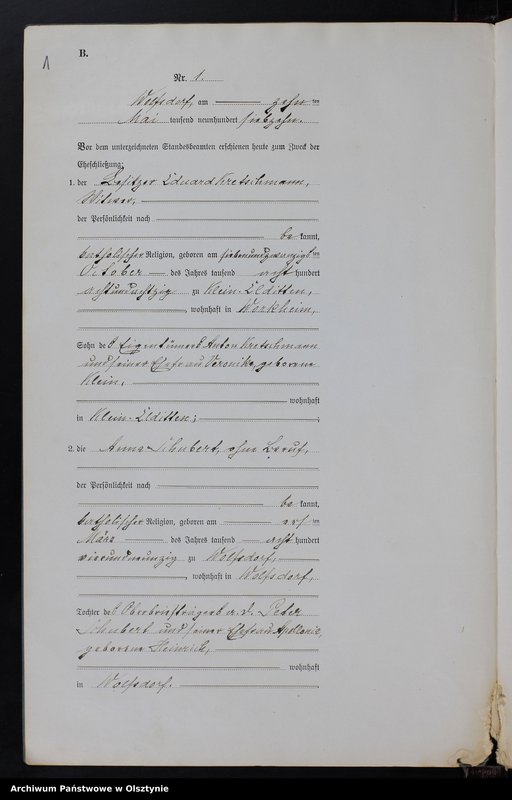 B.
1
Nr. 1.
Wolfsdorf, am zehn ten
Mai tausend neunhundert siebzehn.
Vor dem unterzeichneten Standesbeamten erschienen heute zum Zweck der
Eheschließung:
1. der Besitzer Eduard Kretschmann,
Witwer,
der Persönlichkeit nach
be kannt,
katholischer Religion, geboren am siebenundzwanzigs ten
October des Jahres tausend acht hundert
achtundachtzig zu Klein-Elditten,
, wohnhaft in Workheim,
Sohn des Eigentümers Anton Kretschmann
und seiner Ehefrau Veronika, geborene
Klein,
wohnhaft
in Klein-Elditten;
2. die Anna Schubert, ohne Beruf,
der Persönlichkeit nach
be kannt,
katholischer Religion, geboren am ers ten
März des Jahres tausend acht hundert
vierundneunzig zu Wolfsdorf,
, wohnhaft in Wolfsdorf,
Tochter des Oberbriefträgers a. D. Peter
Schubert und seiner Ehefrau Apollonia,
geborene Heinrich,
wohnhaft
in Wolfsdorf.
Archiwum Państwowe w Olsztynie